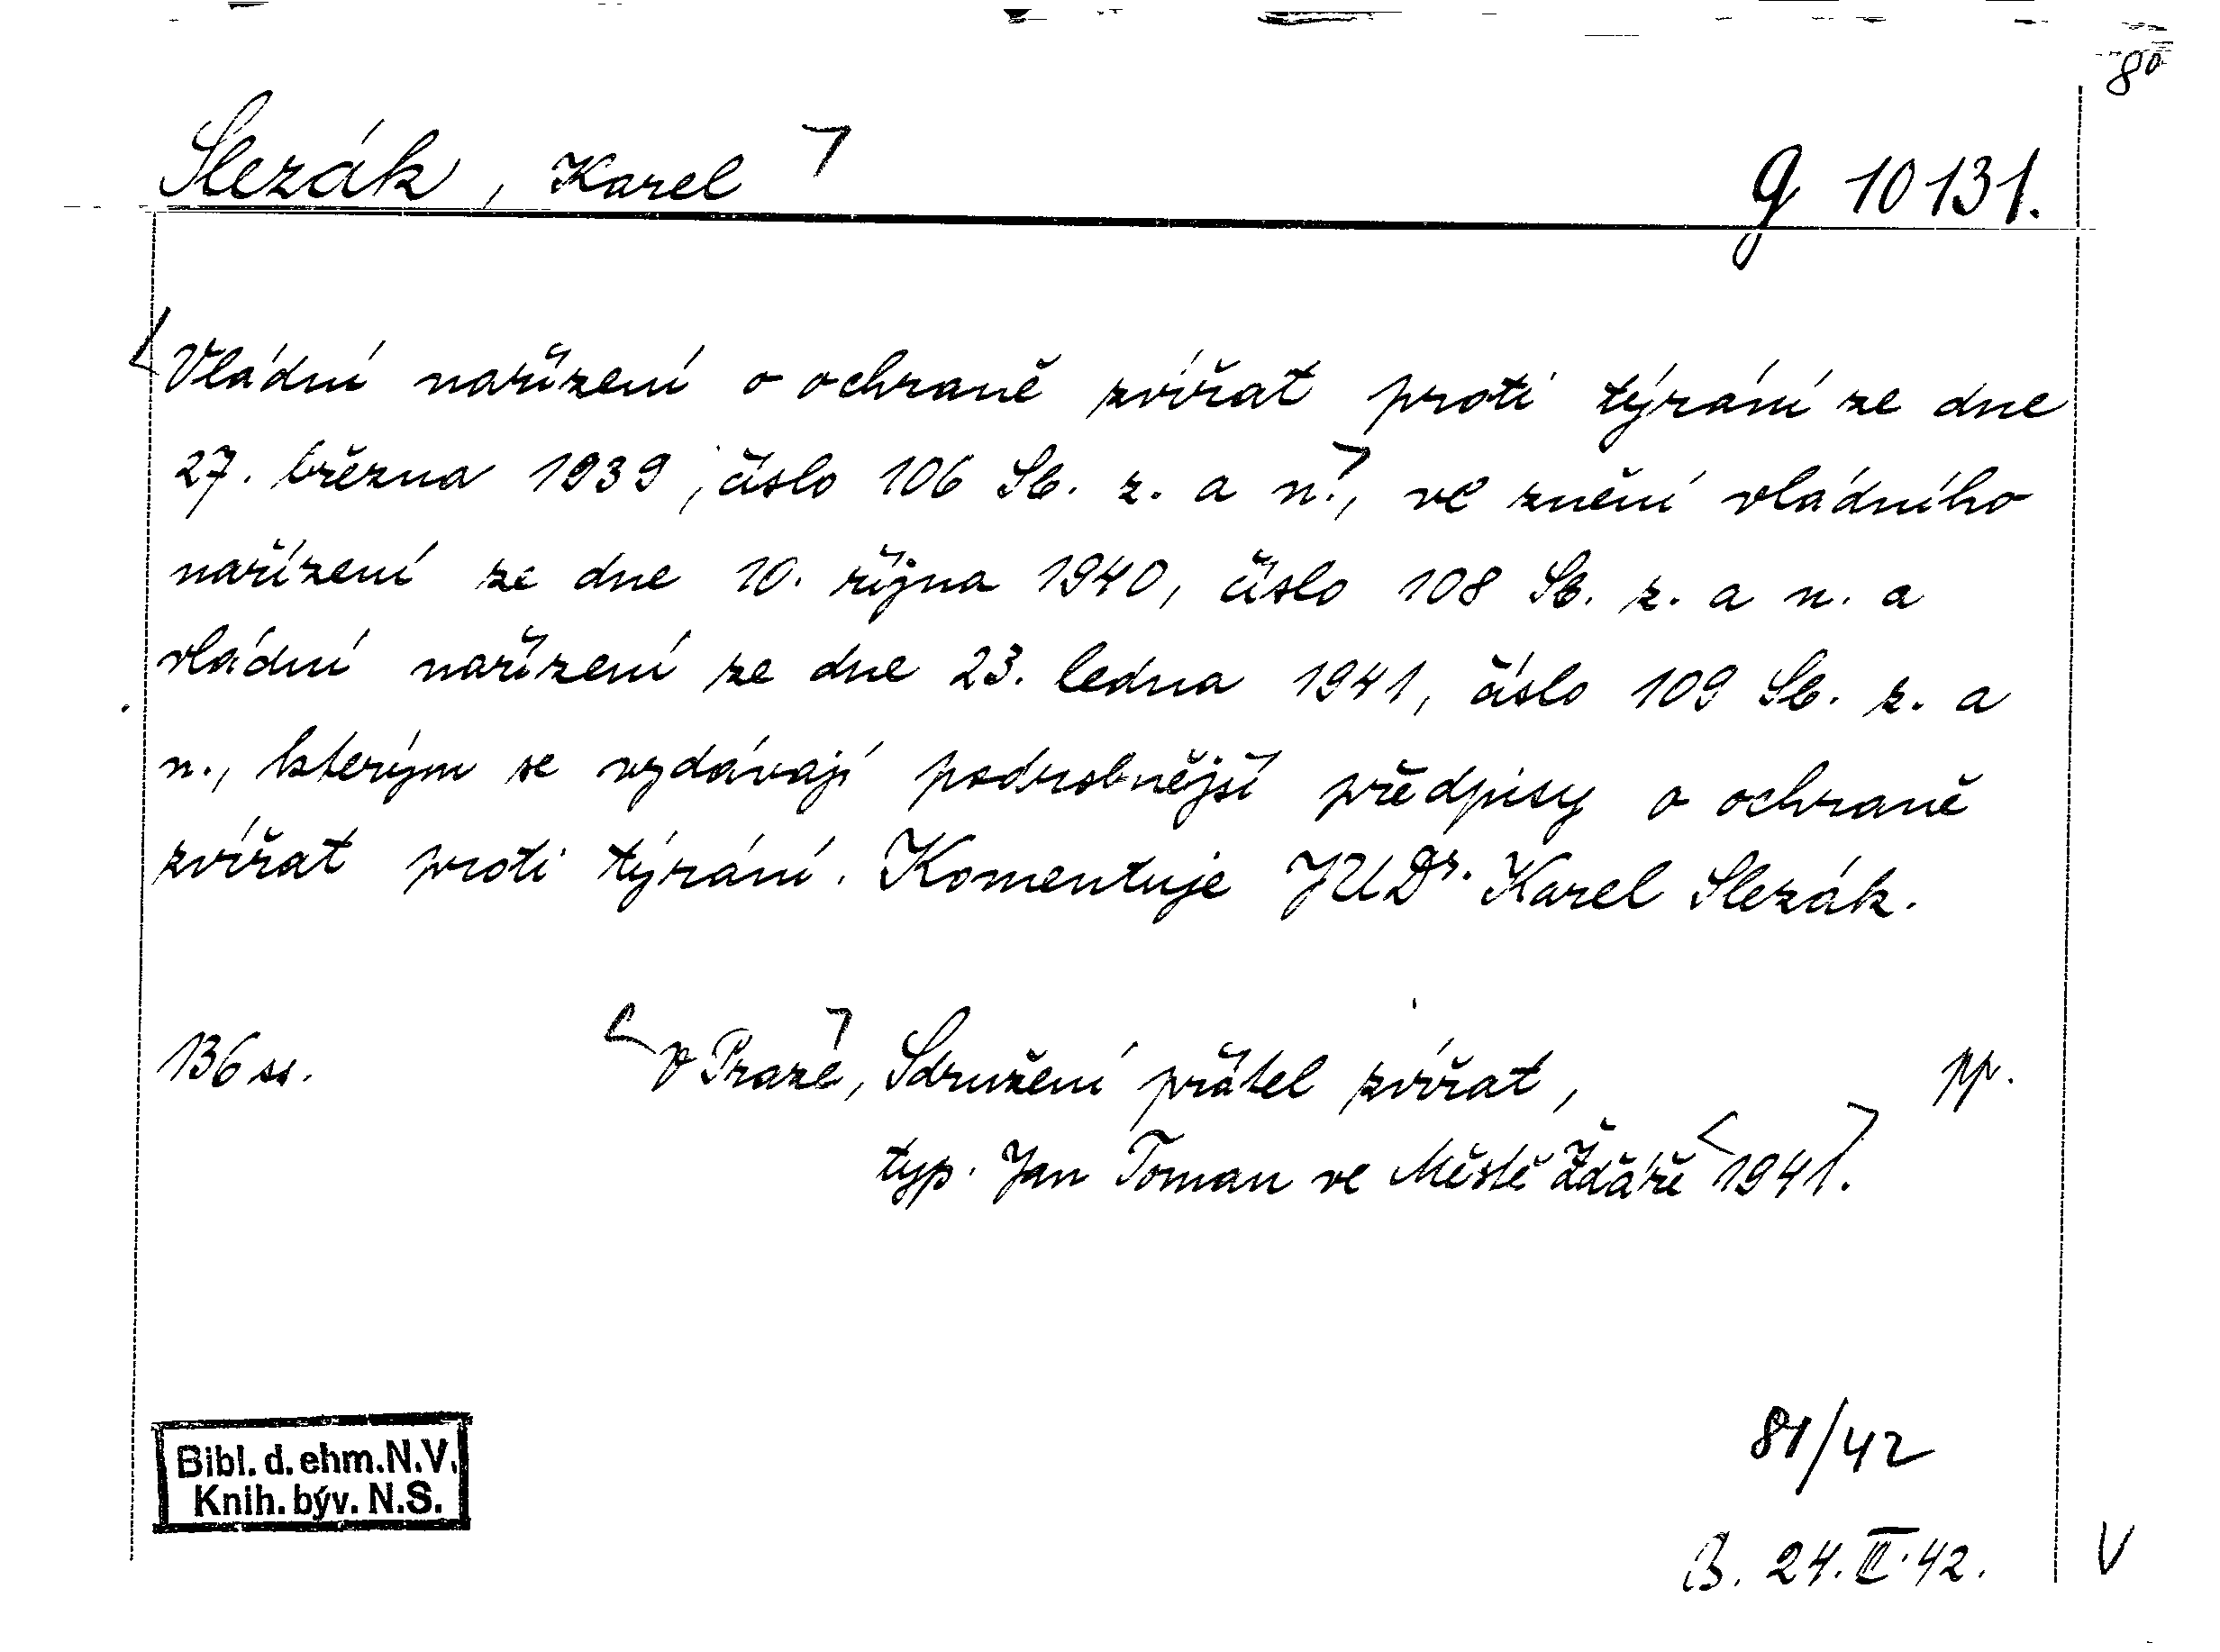 8°
Slezák, Karel
g 10131.
Vládní nařízení o ochraně zvířat proti týrání ze dne
27. března 1939, číslo 106 Sb. z. a n., ve znění vládního
nařízení ze dne 10. října 1940, číslo 108 Sb. z. a n. a
vládní nařízení ze dne 23. ledna 1941, číslo 109 Sb. z. a
n., kterým se vydávají podrobnější předpisy o ochraně
zvířat proti týrání. Komentuje JUDr. Karel Slezák.
136 ss. V Praze, Sdružení přátel zvířat, pp.
typ. Jan Toman ve Městě Žďáře 1941.
81/42
Bibl. d. ehm. N.V.
Knih. býv. N.S.
B. 24. II. 42. V